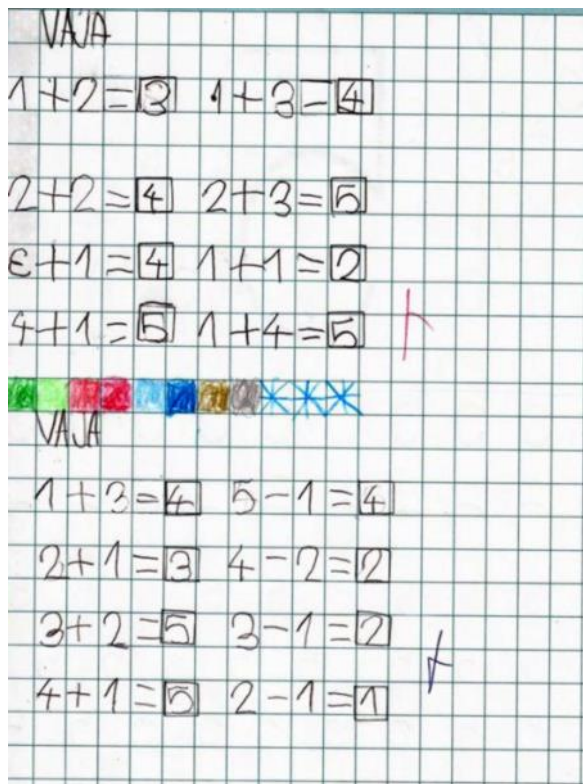 VAJA
1+2=3 1+3=4
2+2=4 2+3=5
ε+1=4 1+1=2
4+1=5 1+4=5
VAJA
1+3=4 5-1=4
2+1=3 4-2=2
3+2=5 3-1=2
4+1=5 2-1=1